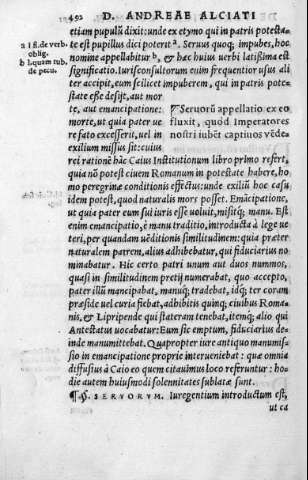 492 D. ANDREAE ALCIATI
etiam pupulū dixit: unde ex etymo qui in patris potesta-
a l. fi. de verb. oblig. te est pupillus dici poterit ᵃ. Seruus quoq; impubes, hoc
b l. quam tub. de pecu. nomine appellabitur ᵇ, & hæc huius uerbi latissima est
significatio. Iurisconsultorum enim frequentior usus ali
ter accipit, eum scilicet impuberem, qui in patris pote-
state esse desijt, aut mor
te, aut emancipatione:
morte, ut quia pater ue
re fato excesserit, uel in
exilium missus sit: cuius
¶ Seruorū appellatio ex eo
fluxit, quòd Imperatores
nostri iubēt captiuos vēde-
rei rationē hāc Caius Institutionum libro primo refert,
quia nō potest ciuem Romanum in potestate habere, ho
mo peregrinæ conditionis effectus: unde exiliū hoc casu
idem potest, quod naturalis mors posset. Emācipatione,
ut quia pater eum sui iuris esse uoluit, misitq; manu. Est
enim emancipatio, è manu traditio, introducta à lege ue
teri, per quandam uēditionis similitudinem: quia præter
naturalem patrem, alius adhibebatur, qui fiduciarius no
minabatur. Hic certo patri unum aut duos nummos,
quasi in similitudinem pretij numerabat, quo accepto,
pater illū mancipabat, manuq; tradebat, idq; ter coram
præside uel curia fiebat, adhibitis quinq; ciuibus Roma-
nis, & Lipripende qui stateram tenebat, itemq; alio qui
Antestatus uocabatur: Eum sic emptum, fiduciarius de-
inde manumittebat. Quapropter iure antiquo manumis-
sio in emancipatione proprie interueniebat: quæ omnia
diffusius à Caio eo quem citauimus loco referuntur: ho-
die autem huiusmodi solennitates sublatæ sunt.
SERVORVM. Iuregentium introductum est,
ut ea